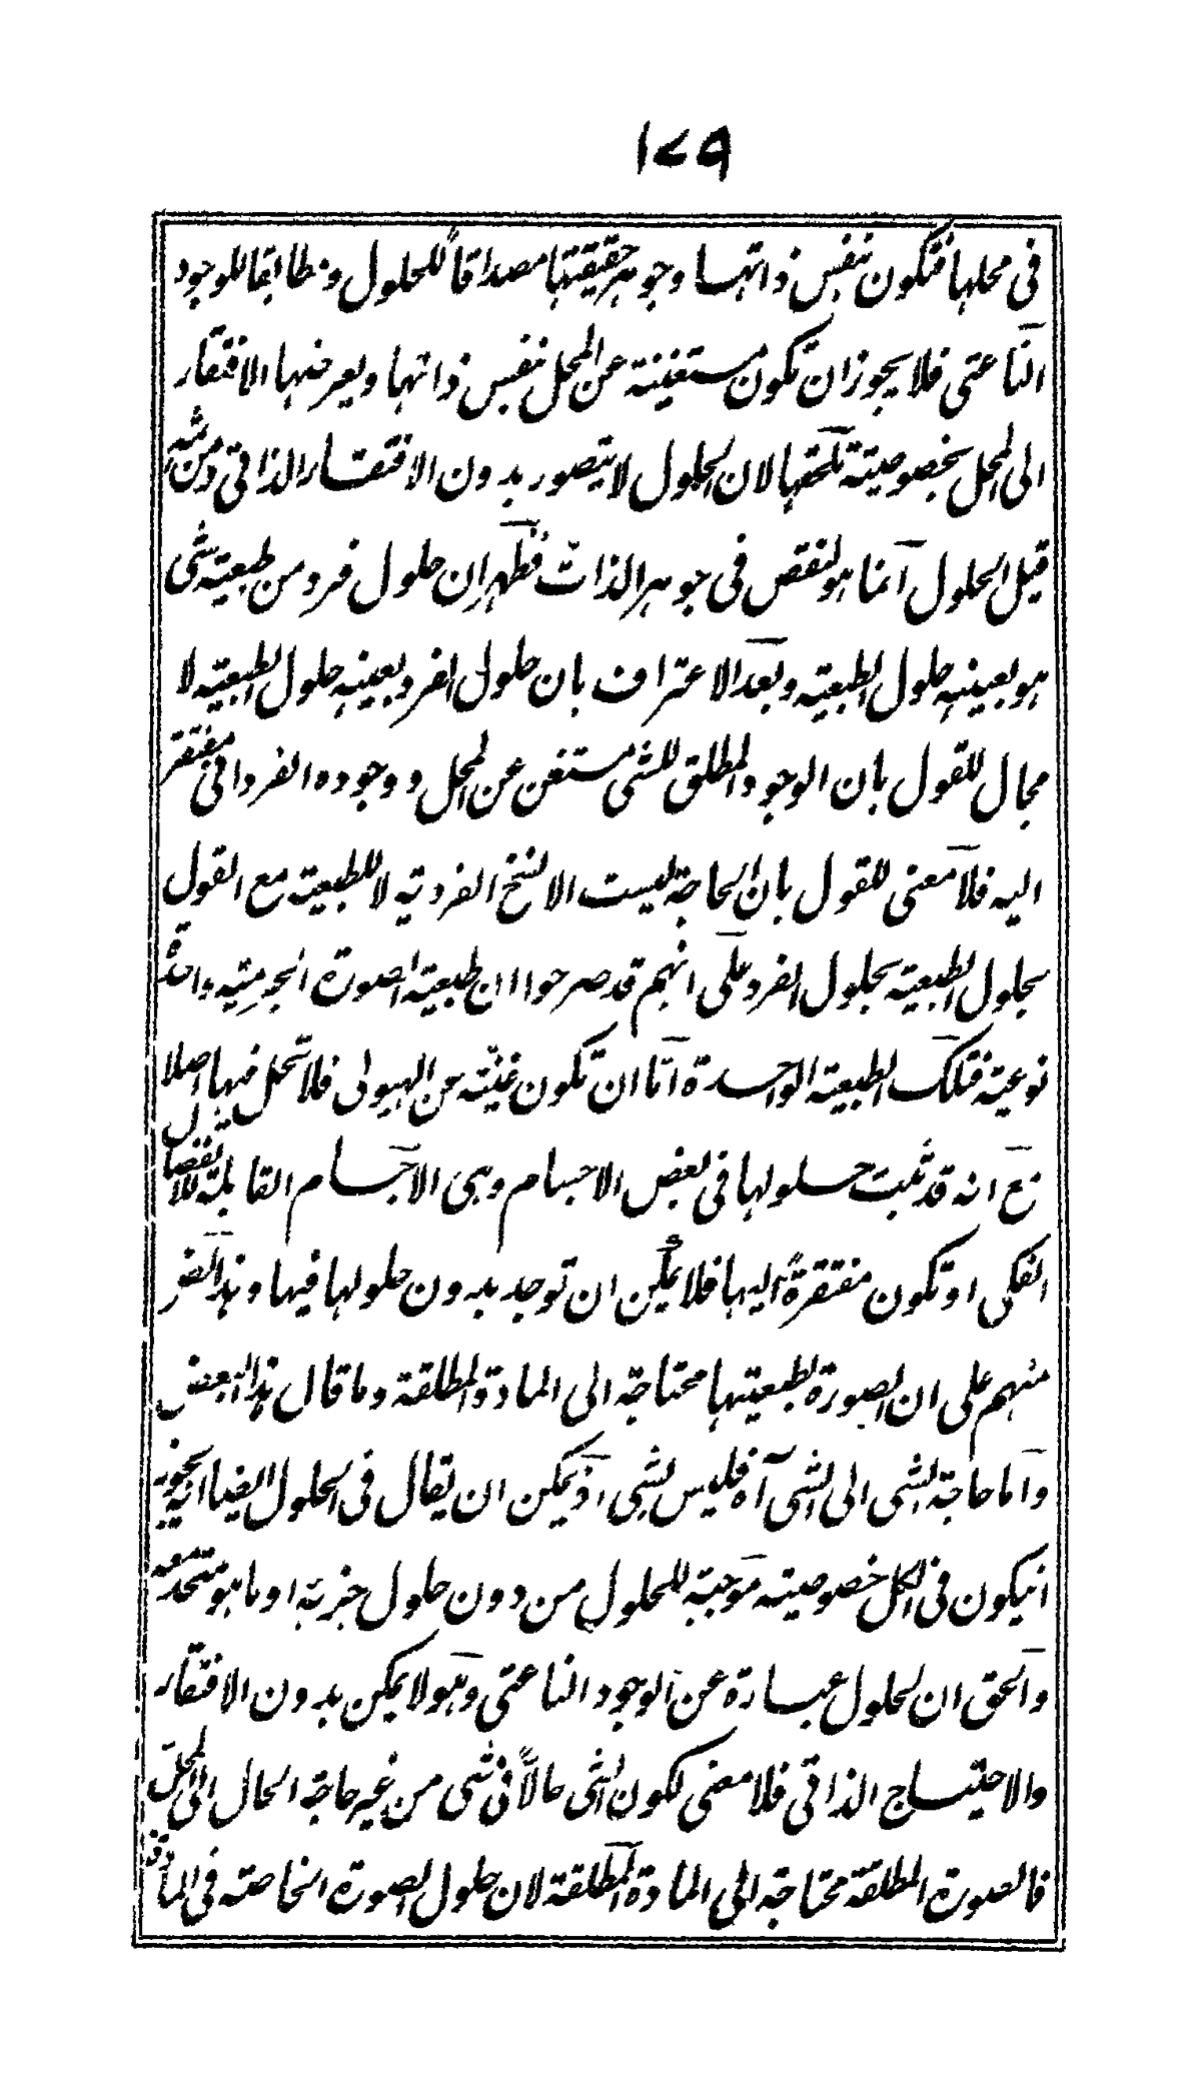 ١٧٩
في محلها فتكون بنفس ذاتها وجوهر حقيقتها مصداقاً للحلول ومطابقا للوجود
الناعتي فلا يجوز ان تكون مستغنية عن المحل بنفس ذاتها ويعرضها الافتقار
الى المحل بخصوصية تلحقها لان الحلول لا يتصور بدون الافتقار الذاتي ومن ثمه
قيل الحلول انما هو لنقص في جوهر الذات فظهر ان حلول فرد من طبيعة شي
هو بعينه حلول الطبعية وبعد الاعتراف بان حلول الفرد بعينه حلول الطبعية لا
مجال للقول بان الوجود المطلق للشي مستغن عن المحل ووجوده الفرداني مفتقر
اليه فلا معنى للقول بان الحاجة ليست الا لنخ الفردية لا للطبعية مع القول
بحلول الطبعية بحلول الفرد على انهم قد صرحوا ان طبعية الصورة الجرمية واحدة
نوعية فتلك الطبعية الواحدة اما ان تكون غنية عن الهيولى فلا تحل فيها اصلا
مع انه قد ثبت حلولها في بعض الاجسام وهى الاجسام القابلة للانفصال
الفكى او تكون مفتقرةً اليها فلا يمكن ان توجد بدون حلولها فيها وهذا نص
منهم على ان الصورة لطبعيتها محتاجة الى المادة المطلقة وما قال هذا البعض
واما حاجة الشى الى الشى آه فليس بشى اذ يمكن ان يقال في الحلول ايضا انه يجوز
انيكون في الكل خصوصية موجبة للحلول من دون حلول جزئه او ما هو متحد معه
والحق ان الحلول عبارة عن الوجود الناعتي وهو لا يمكن بدون الافتقار
والاحتياج الذاتي فلا معنى لكون الشى حالاً في شى من غير حاجة الحال الى المحل
فالصورة المطلقة محتاجة الى المادة المطلقة لان حلول الصورة الخاصة في المادة